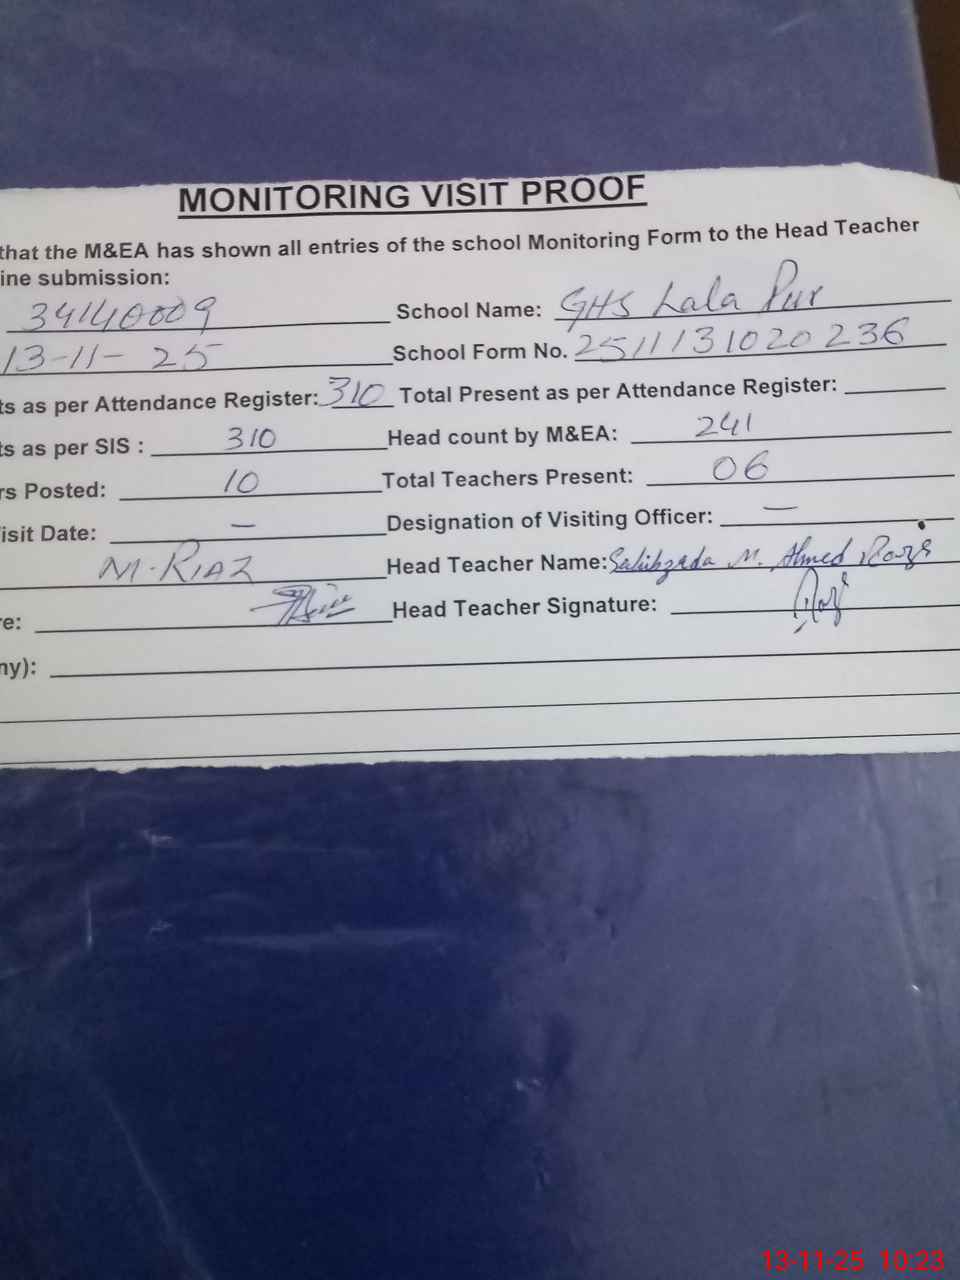 MONITORING VISIT PROOF
that the M&EA has shown all entries of the school Monitoring Form to the Head Teacher
ine submission:
34140009 School Name: GHS Lala Pur
13-11-25 School Form No. 2511131020236
ts as per Attendance Register: 310 Total Present as per Attendance Register:
ts as per SIS : 310 Head count by M&EA: 241
rs Posted: 10 Total Teachers Present: 06
isit Date: — Designation of Visiting Officer: —
M.RIAZ Head Teacher Name: Sahibzada M. Ahmed Raza
re: Head Teacher Signature:
ny):
13-11-25 10:23